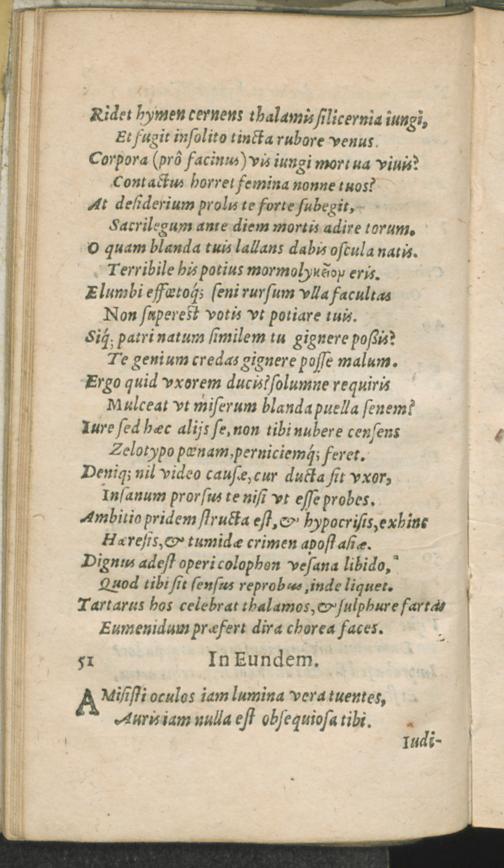 Ridet hymen cernens thalamis ſilicernia iungi,
Et fugit inſolito tincta rubore venus.
Corpora (prô facinus) vis iungi mortua viuis?
Contactus horret femina nonne tuos?
At deſiderium prolis te forte ſubegit,
Sacrilegum ante diem mortis adire torum.
O quam blanda tuis lallans dabis oſcula natis.
Terribile his potius mormolyκεῖομ eris.
Elumbi effœtoq́; ſeni rurſum vlla facultas
Non ſupereſt votis vt potiare tuis.
Siq́; patri natum ſimilem tu gignere poßis?
Te genium credas gignere poſſe malum.
Ergo quid vxorem ducis? ſolumne requiris
Mulceat vt miſerum blanda puella ſenem?
Iure ſed hæc alijs ſe, non tibi nubere cenſens
Zelotypo pœnam, perniciemq́; feret.
Deniq; nil video cauſæ, cur ducta ſit vxor,
Inſanum prorſus te niſi vt eſſe probes.
Ambitio pridem ſtructa eſt, & hypocriſis, exhinc
Hæreſis, & tumidæ crimen apoſtaſiæ.
Dignus adeſt operi colophon veſana libido,
Quod tibi ſit ſenſus reprobus, inde liquet.
Tartarus hos celebrat thalamos, & ſulphure fartas
Eumenidum præfert dira chorea faces.
51 In Eundem.
AMiſiſti oculos iam lumina vera tuentes,
Auris iam nulla eſt obſequioſa tibi.
Iudi-